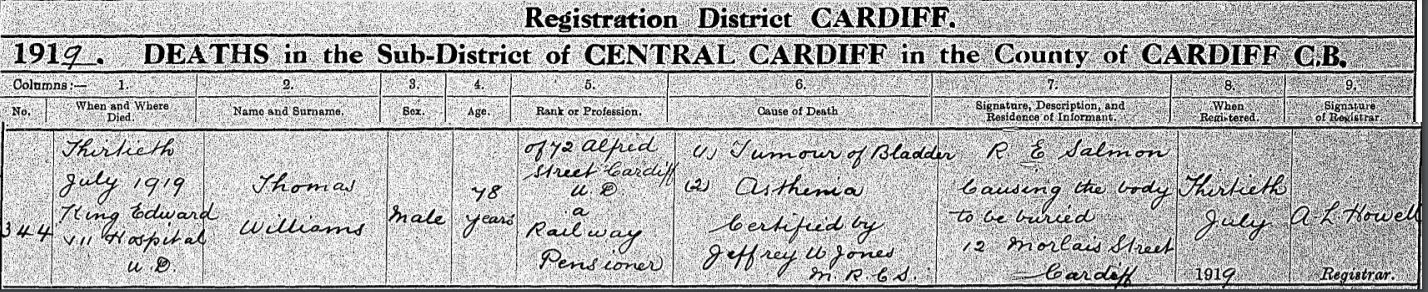 Registration District CARDIFF.
1919. DEATHS in the Sub-District of CENTRAL CARDIFF in the County of CARDIFF C.B.
Columns:— 1. 2. 3. 4. 5. 6. 7. 8. 9.
No. When and Where Died. Name and Surname. Sex. Age. Rank or Profession. Cause of Death Signature, Description, and Residence of Informant. When Registered. Signature of Registrar.
344
Thirtieth
July 1919
King Edward
VII Hospital
U.D.
Thomas
Williams
Male
78
years
of 72 Alfred
Street Cardiff
U.D.
a
Railway
Pensioner
(1) Tumour of Bladder
(2) Asthenia
Certified by
Jeffrey W Jones
M.R.C.S.
R. E Salmon
Causing the body
to be buried
12 Morlais Street
Cardiff
Thirtieth
July
1919
A L Howell
Registrar.